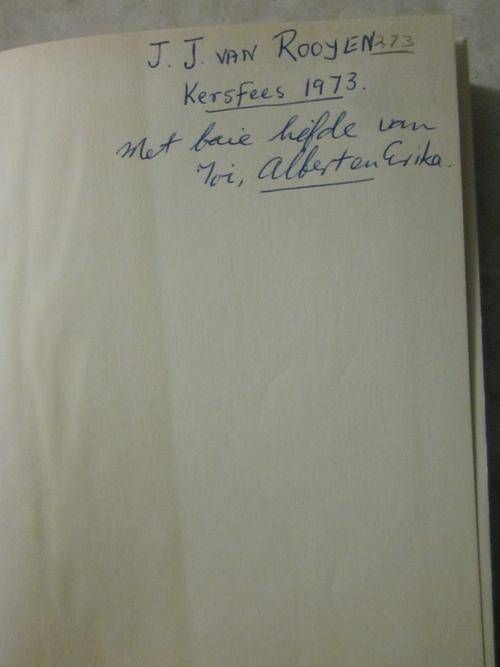 J. J. VAN ROOYEN 273
Kersfees 1973.
Met baie liefde van
Joi, Albert en Erika.